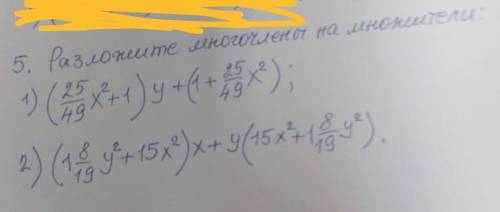 5. Разложите многочлены на множители:
1) (25/49 x² + 1) y + (1 + 25/49 x²);
2) (1 8/19 y² + 15x²) x + y (15x² + 1 8/19 y²).